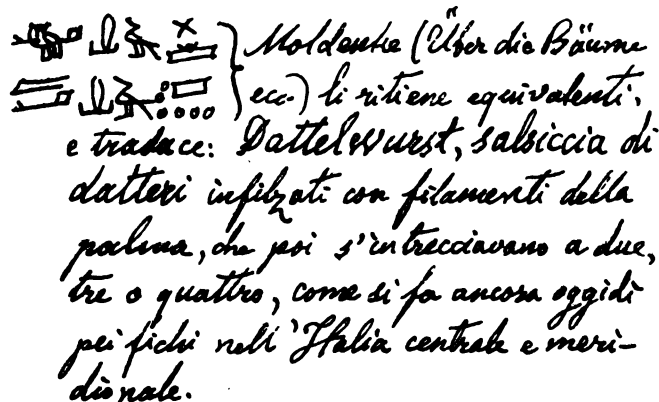 Moldenke (Über die Bäume
ecc.) li ritiene equivalenti,
e traduce: Dattelwurst, salsiccia di
datteri infilzati con filamenti della
palma, che poi s'intrecciavano a due,
tre o quattro, come si fa ancora oggidì
pei fichi nell'Italia centrale e meri-
dionale.